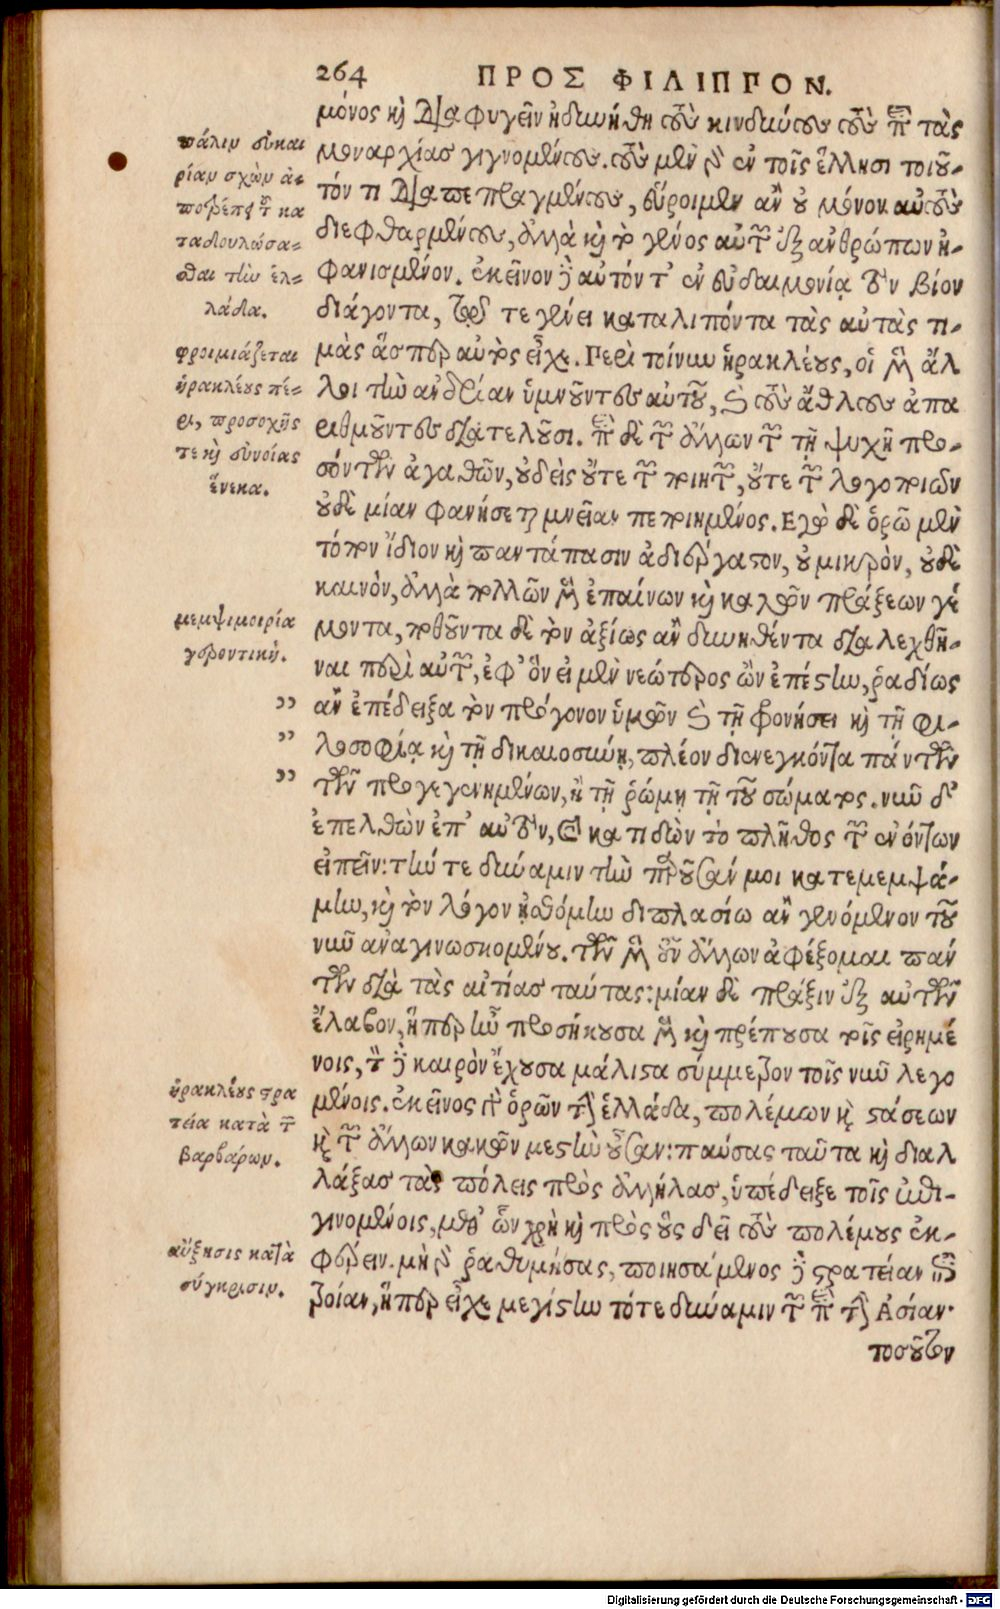 264 ΠΡΟΣ ΦΙΛΙΠΠΟΝ.
μόνος καὶ διαφυγεῖν ἠδυνήθη τοὺς κινδύνους τοὺς περὶ τὰς
μοναρχίας γιγνομένους. τοὺς μὲν γὰρ ἐν τοῖς ἕλλησι τοιοῦ-
τόν τι διαπεπραγμένους, εὕροιμεν ἂν οὐ μόνον αὐτοὺς
διεφθαρμένους, ἀλλὰ καὶ τὸ γένος αὐτῶν ἐξ ἀνθρώπων ἠ-
φανισμένον. ἐκεῖνον δὲ αὐτόν τ' ἐν εὐδαιμονίᾳ τὸν βίον
διάγοντα, τῷ τε γένει καταλιπόντα τὰς αὐτὰς τι-
μὰς ἅσπερ αὐτὸς εἶχε. Περὶ τοίνυν ἡρακλέους, οἱ μὲν ἄλ
λοι τὴν ἀνδρίαν ὑμνοῦντες αὐτοῦ, καὶ τοὺς ἄθλους ἀπα
ριθμοῦντες διατελοῦσι. περὶ δὲ τῶν ἄλλων τῶν τῇ ψυχῇ προ-
σόντων ἀγαθῶν, οὐδεὶς οὔτε τῶν ποιητῶν, οὔτε τῶν λογοποιῶν
οὐδεμίαν φανήσεται μνείαν πεποιημένος. Εγὼ δὲ ὁρῶ μὲν
τόπον ἴδιον καὶ παντάπασιν ἀδιέργαστον, οὐ μικρὸν, οὐδὲ
καινὸν, ἀλλὰ πολλῶν μὲν ἐπαίνων καὶ καλῶν πράξεων γέ
μοντα, ποθοῦντα δὲ τὸν ἀξίως ἂν δυνηθέντα διαλεχθῆ-
ναι περὶ αὐτῶν, ἐφ' ὃν εἰ μὲν νεώτερος ὢν ἐπέστην, ῥαδίως
,, ἂν ἐπέδειξα τὸν πρόγονον ὑμῶν καὶ τῇ φρονήσει καὶ τῇ φι-
,, λοσοφίᾳ καὶ τῇ δικαιοσύνῃ, πλέον διενεγκόντα πάντων
,, τῶν προγεγενημένων, ἢ τῇ ῥώμῃ τῇ τοῦ σώματος. νῦν δ'
ἐπελθὼν ἐπ' αὐτὸν, καὶ κατιδὼν τὸ πλῆθος τῶν ἐνόντων
εἰπεῖν: τήν τε δύναμιν τὴν παροῦσάν μοι κατεμεμψά-
μην, καὶ τὸν λόγον ᾐσθόμην διπλασίω ἂν γενόμενον τοῦ
νῦν ἀναγινωσκομένου. τῶν μὲν οὖν ἄλλων ἀφέξομαι πάν
των διὰ τὰς αἰτίας ταύτας: μίαν δὲ πρᾶξιν ἐξ αὐτῶν
ἔλαβον, ἥπερ ἦν προσήκουσα μὲν καὶ πρέπουσα τοῖς εἰρημέ
νοις, τὸν δὲ καιρὸν ἔχουσα μάλιστα σύμμετρον τοῖς νῦν λεγο
μένοις. ἐκεῖνος γὰρ ὁρῶν τὴν ἑλλάδα, πολέμων καὶ στάσεων
καὶ τῶν ἄλλων κακῶν μεστὴν οὖσαν: παύσας ταῦτα καὶ διαλ
λάξας τὰς πόλεις πρὸς ἀλλήλας, ὑπέδειξε τοῖς ἐπι-
γινομένοις, μεθ' ὧν χρὴ καὶ πρὸς οὓς δεῖ τοὺς πολέμους ἐκ-
φέρειν. μὴ γὰρ ῥαθυμήσας, ποιησάμενος δὲ στρατείαν ἐπὶ
τροίαν, ἥπερ εἶχε μεγίστην τότε δύναμιν τῶν περὶ τὴν Ἀσίαν·
τοσοῦτον
πάλιν εὐκαι
ρίαν σχὼν ἀ-
ποτρέπει τοῦ κα
ταδουλώσα-
σθαι τὴν ἑλ-
λάδα.
φροιμιάζεται
ἡρακλέους πέ-
ρι, προσοχῆς
τε καὶ εὐνοίας
ἕνεκα.
μεμψιμοιρία
γεροντική.
ἡρακλέους στρα
τεία κατὰ τῶν
βαρβάρων.
αὔξησις κατὰ
σύγκρισιν.
Digitalisierung gefördert durch die Deutsche Forschungsgemeinschaft - DFG